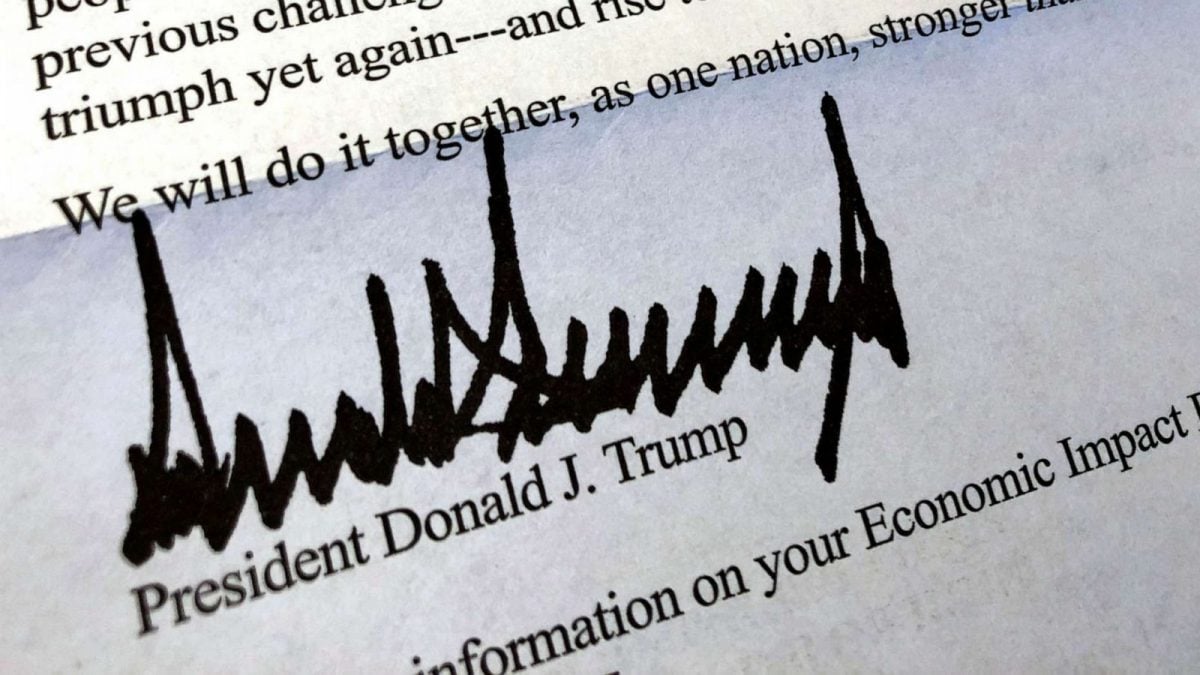 previous
triumph yet again---and
We will do it together, as one nation, stronger
President Donald J. Trump
information on your Economic Impact